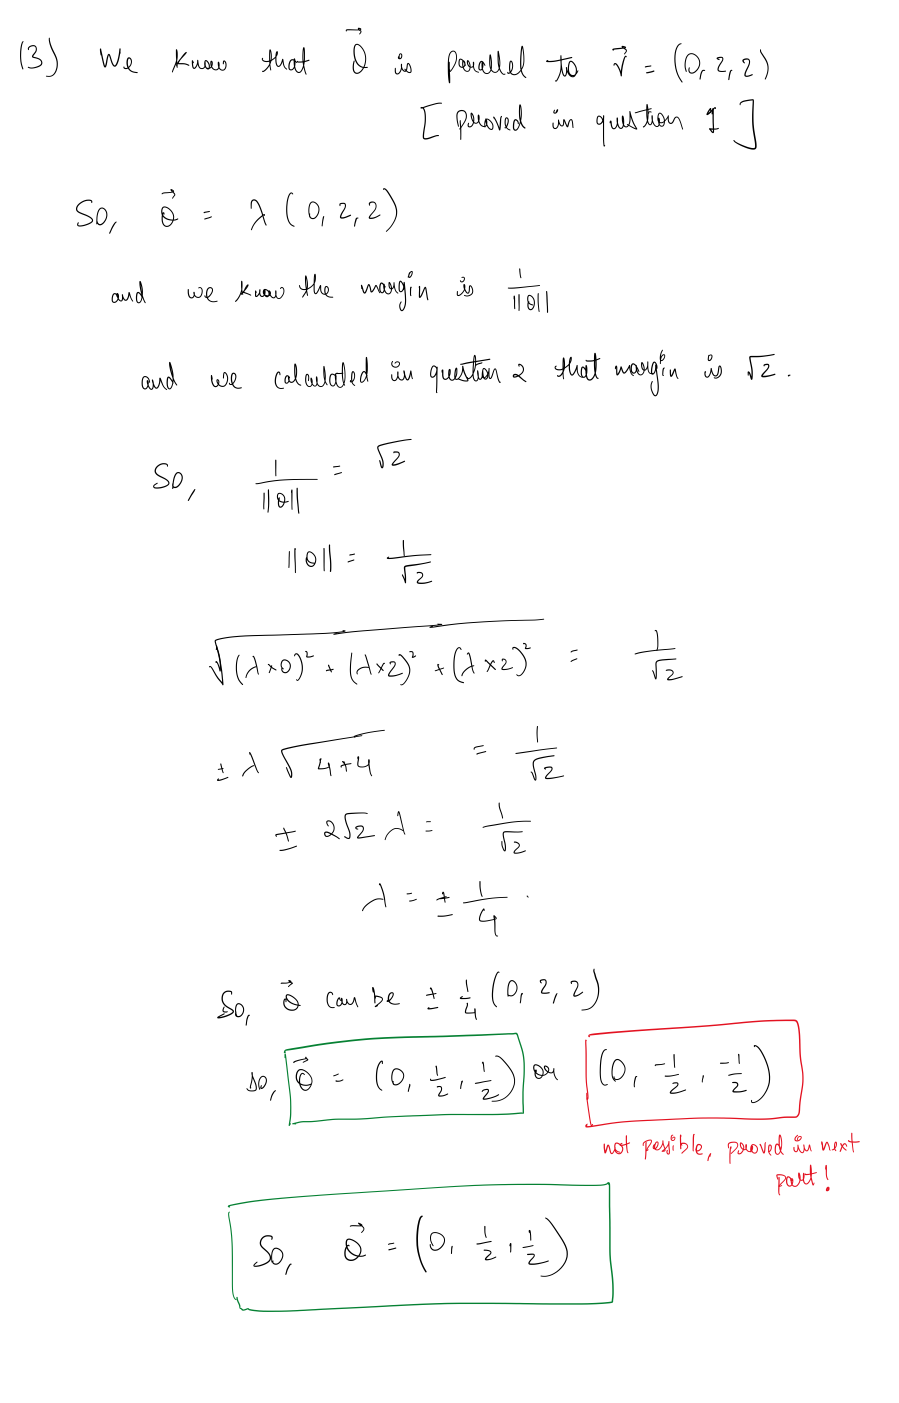 (3) We know that θ⃗ is parallel to v⃗ = (0, 2, 2)
[proved in question 1]
So, θ⃗ = λ (0, 2, 2)
and we know the margin is 1/||θ||
and we calculated in question 2 that margin is √2.
So, 1/||θ|| = √2
||θ|| = 1/√2
√((λ×0)² + (λ×2)² + (λ×2)²) = 1/√2
± λ √(4+4) = 1/√2
± 2√2 λ = 1/√2
λ = ± 1/4.
So, θ⃗ can be ± 1/4 (0, 2, 2)
so, θ⃗ = (0, 1/2, 1/2) or (0, -1/2, -1/2)
not possible, proved in next
part!
So, θ⃗ = (0, 1/2, 1/2)